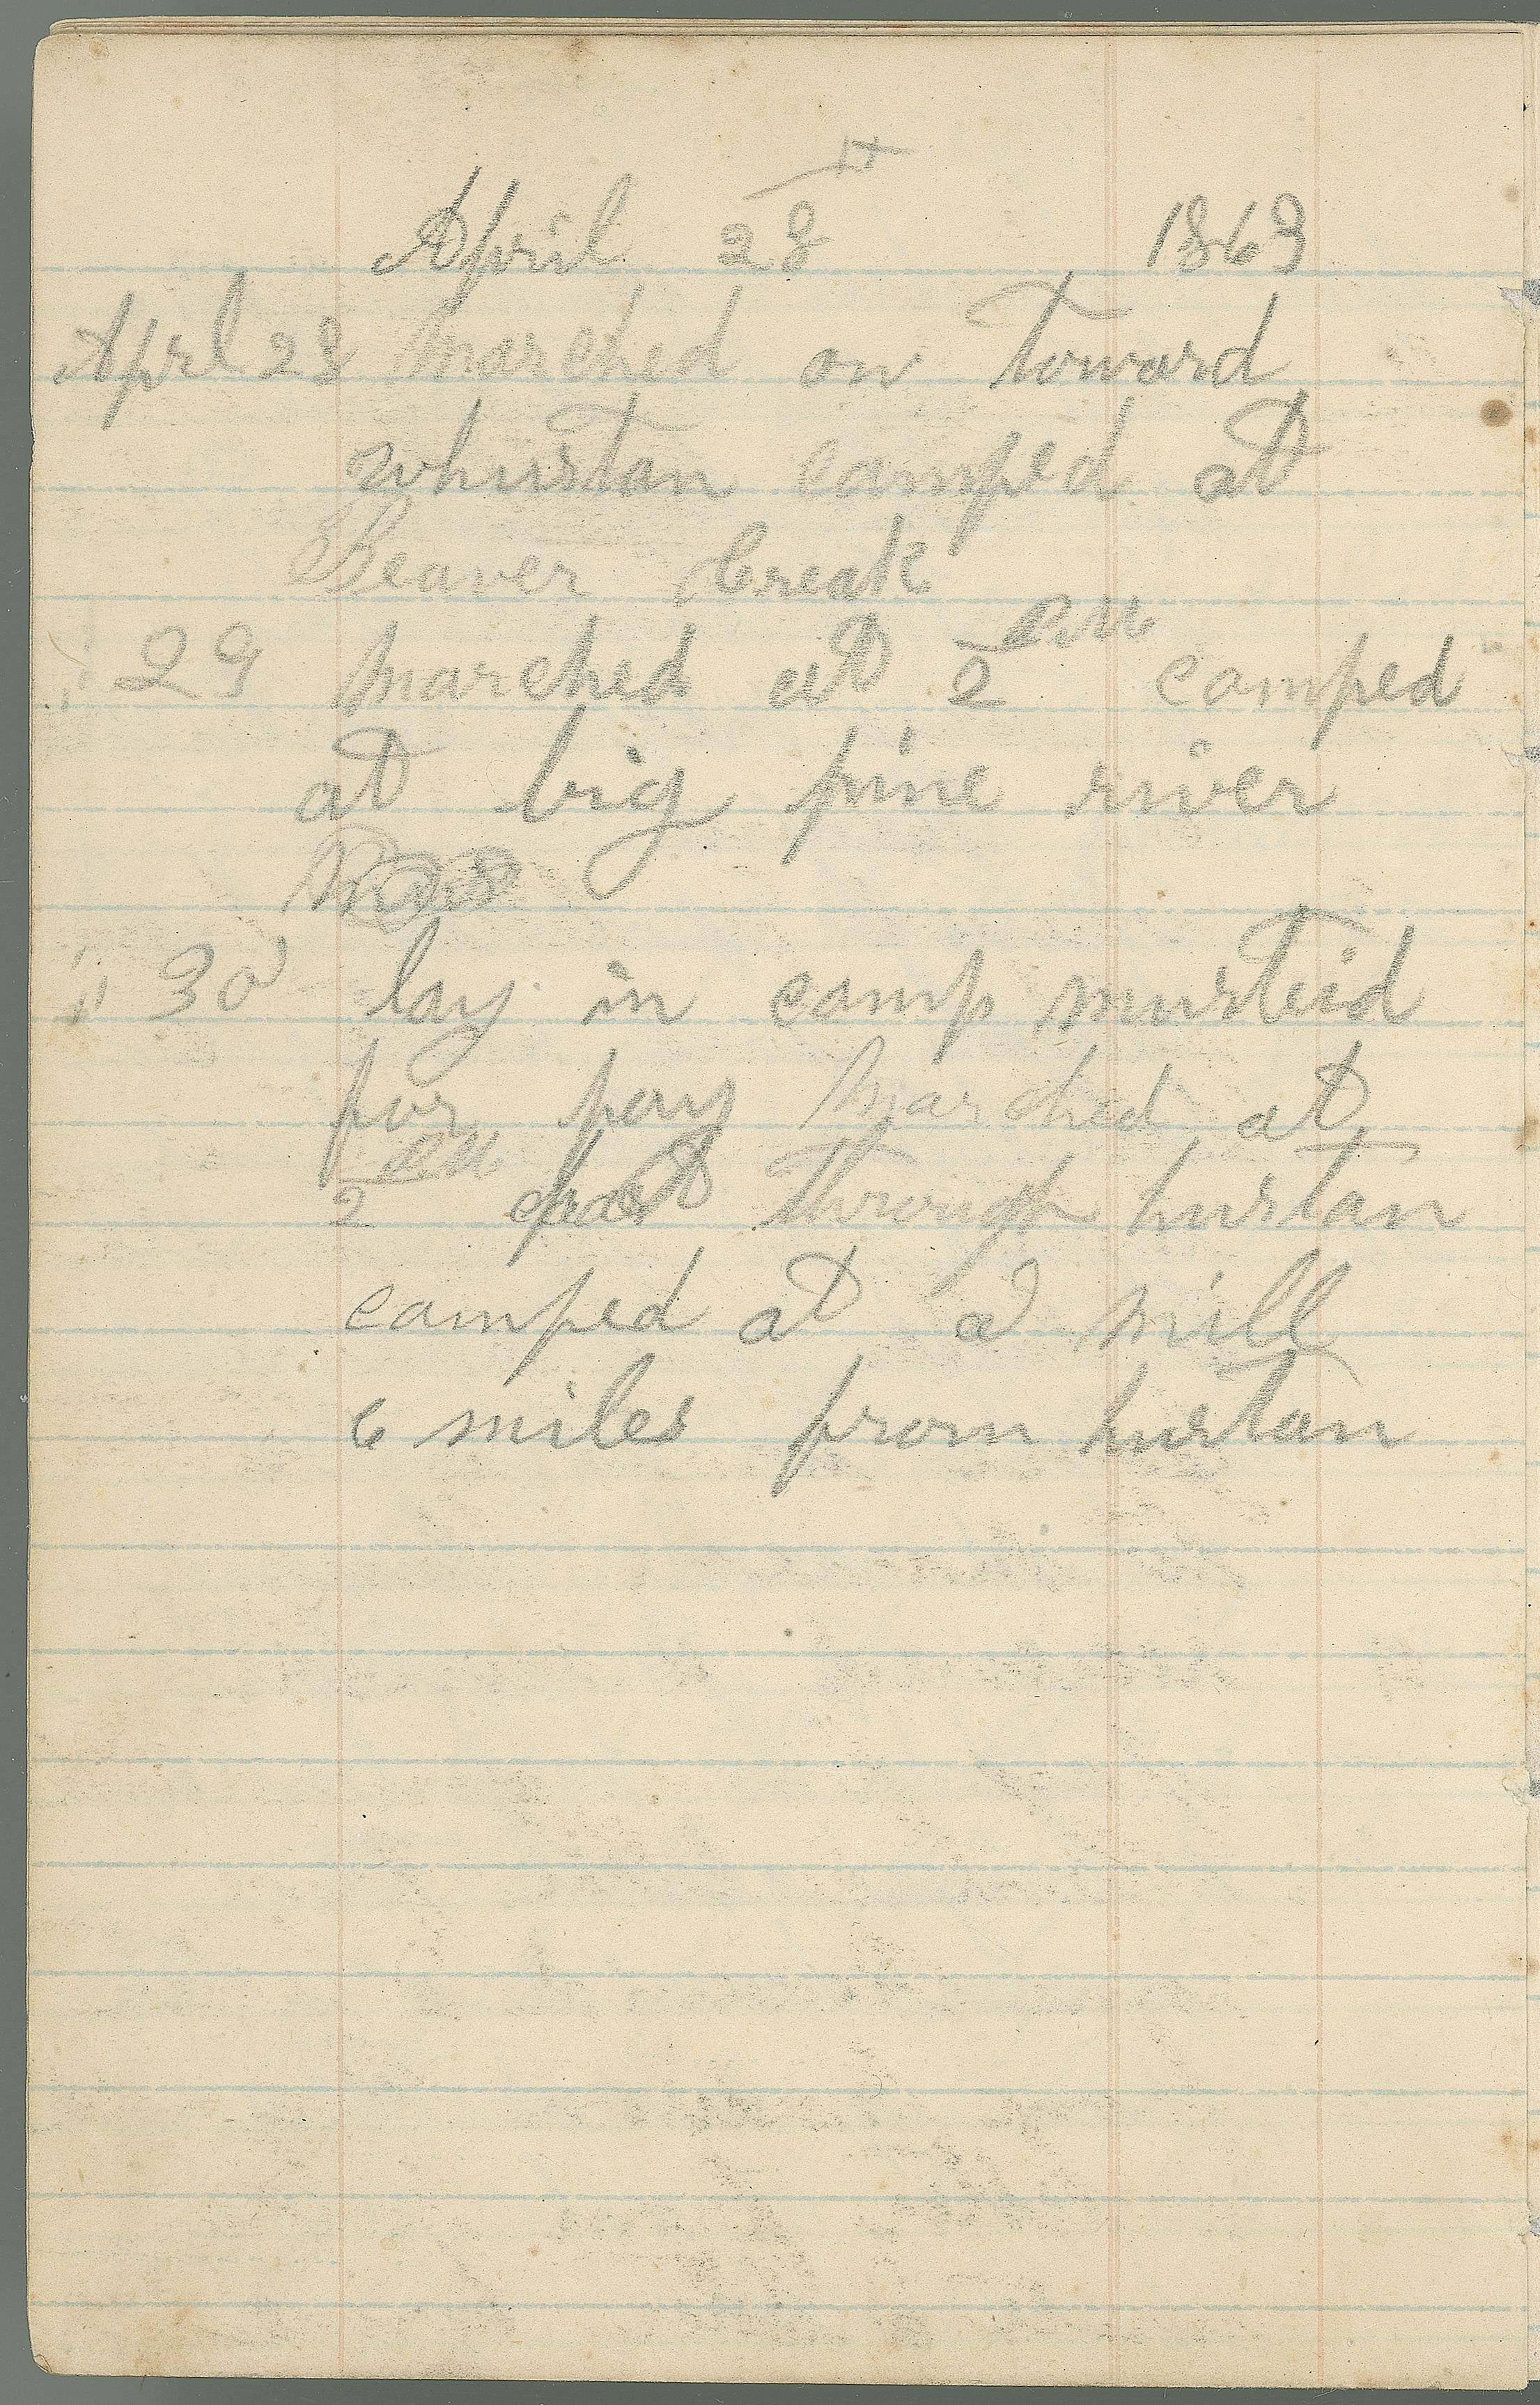 April 28 1863
Aprl 28 marched on toward
whustan camped at
Beaver Creak
" 29 marched at 2 camped
at big pine river
" 30 lay in camp musteid
for pay marched at
2 past through hustan
camped at a mill
6 miles from hustan